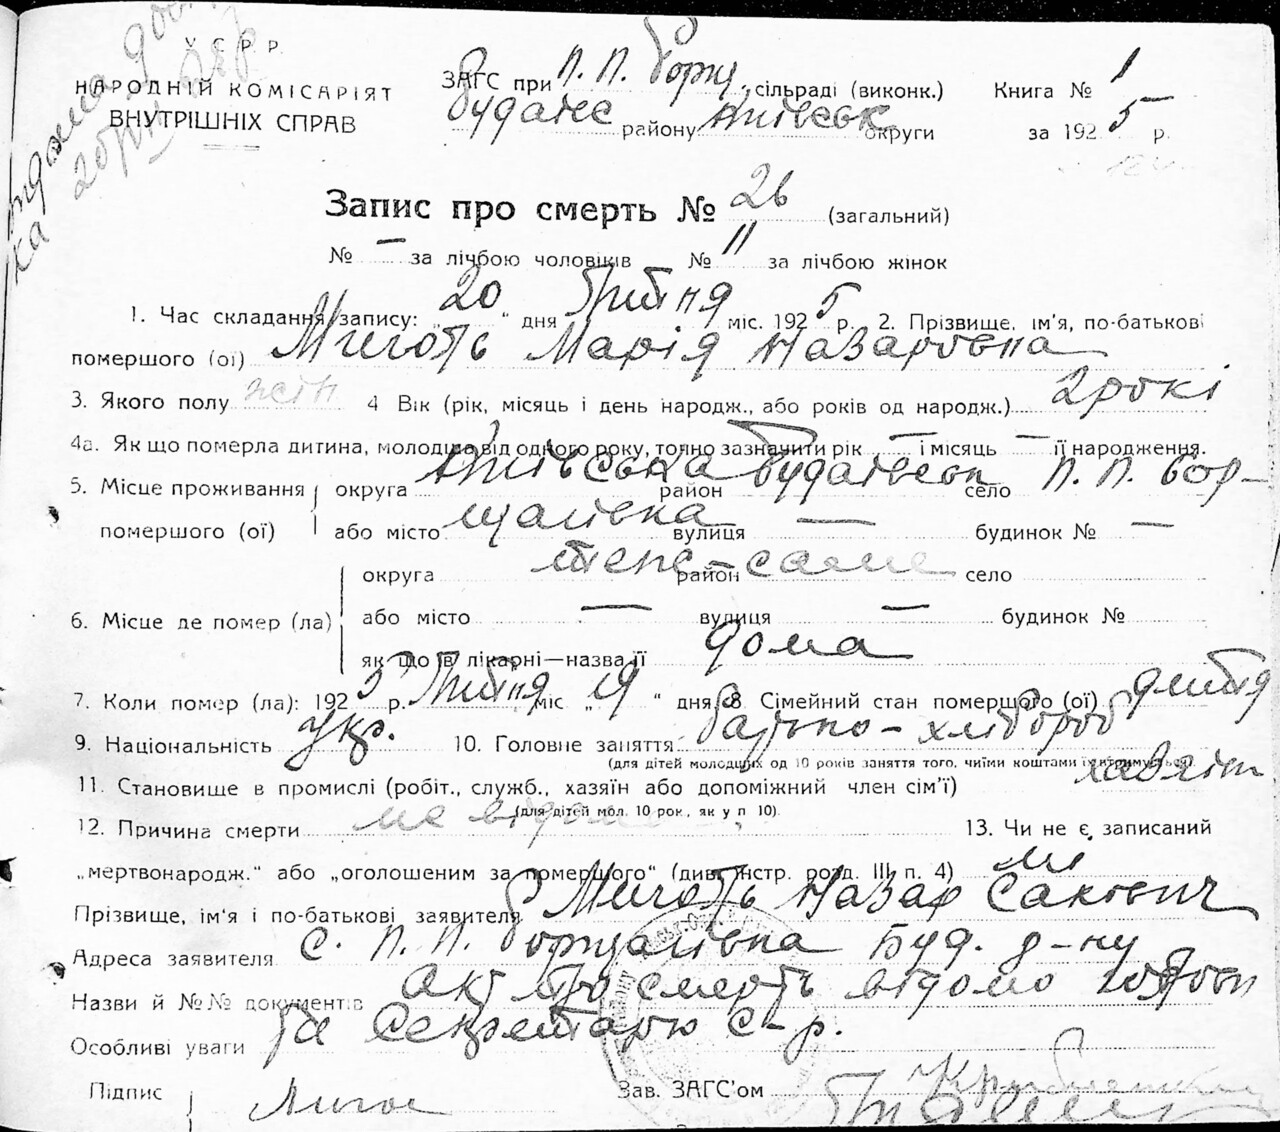 У.С.Р.Р.
НАРОДНІЙ КОМІСАРІЯТ
ВНУТРІШНІХ СПРАВ
ЗАГС при П. П. Борщ. сільраді (виконк.)
району округи
Книга № 1
за 1925 р.
Запис про смерть № 26 (загальний)
№ — за лічбою чоловіків № 11 за лічбою жінок
1. Час складання запису: „20“ дня квітня міс. 1925 р. 2. Прізвище, ім'я, по-батькові
помершого (ої) Марія Назаровна
3. Якого полу жін 4 Вік (рік, місяць і день народж., або років од народж.) 2 рокі
4а. Як що померла дитина, молодша від одного року, точно зазначити рік — і місяць — її народження.
5. Місце проживання помершого (ої) округа район село П. П. Бор-
або місто щагівка вулиця — будинок № —
6. Місце де помер (ла) округа теж-саме район село
або місто — вулиця — будинок №
як що в лікарні—назва її дома
7. Коли помер (ла): 1925 р. квітня міс „19“ дня 8 Сімейний стан помершого (ої) дитина
9. Національність Укр. 10. Головне заняття батько – хлібороб
(для дітей молодших од 10 років заняття того, чиїми коштами їх втримується).
11. Становище в промислі (робіт., служб., хазяїн або допоміжний член сім'ї) хазяїн
(для дітей мол. 10 рок., як у п 10).
12. Причина смерти не відомо 13. Чи не є записаний
„мертвонародж.“ або „оголошеним за помершого“ (див. інстр. розд. III п. 4) ні
Прізвище, ім'я і по-батькові заявителя Назар
Адреса заявителя с. П. П. Борщагівка Буд. р-ну
Назви й №№ документів акт про смерть відомо
Особливі уваги Секретарю С-р.
Підпис
Зав. ЗАГС'ом